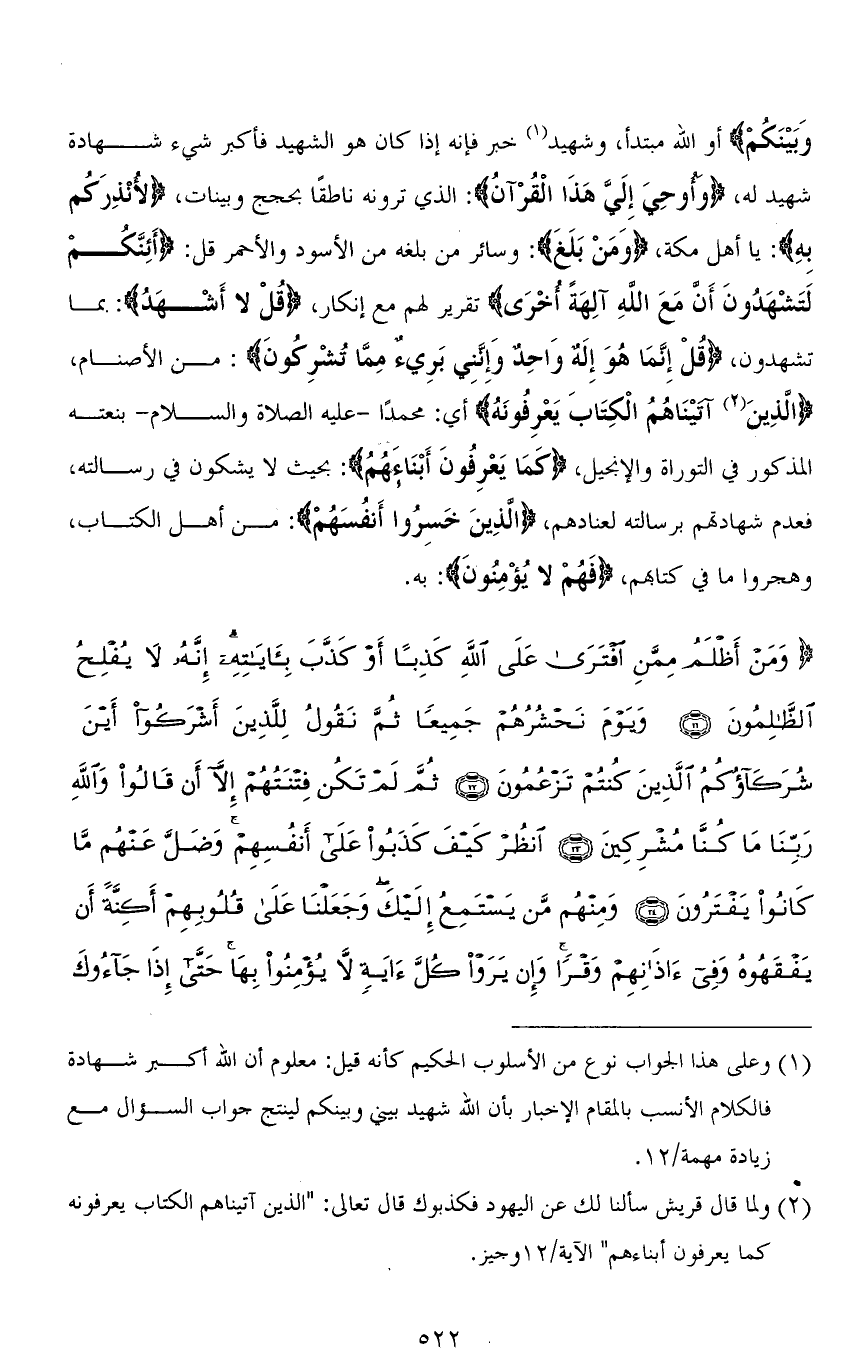 وَبَيْنَكُمْ﴾ أو الله مبتدأ، وشهيد(١) خبر فإنه إذا كان هو الشهيد فأكبر شيء شهادة
شهيد له، ﴿وَأُوحِيَ إِلَيَّ هَذَا الْقُرْآنُ﴾: الذي ترونه ناطقًا بحجج وبينات، ﴿لأُنْذِرَكُم
بِهِ﴾: يا أهل مكة، ﴿وَمَنْ بَلَغَ﴾: وسائر من بلغه من الأسود والأحمر قل: ﴿أَئِنَّكُمْ
لَتَشْهَدُونَ أَنَّ مَعَ اللَّهِ آلِهَةً أُخْرَى﴾ تقرير لهم مع إنكار، ﴿قُلْ لا أَشْهَدُ﴾: بما
تشهدون، ﴿قُلْ إِنَّمَا هُوَ إِلَهٌ وَاحِدٌ وَإِنَّنِي بَرِيءٌ مِمَّا تُشْرِكُونَ﴾ : من الأصنام،
﴿الَّذِينَ(٢) آتَيْنَاهُمُ الْكِتَابَ يَعْرِفُونَهُ﴾ أي: محمدًا -عليه الصلاة والسلام- بنعته
المذكور في التوراة والإنجيل، ﴿كَمَا يَعْرِفُونَ أَبْنَاءَهُمُ﴾: بحيث لا يشكون في رسالته،
فعدم شهادتهم برسالته لعنادهم، ﴿الَّذِينَ خَسِرُوا أَنفُسَهُمْ﴾: من أهل الكتاب،
وهجروا ما في كتابهم، ﴿فَهُمْ لا يُؤْمِنُونَ﴾: به.
﴿ وَمَنْ أَظْلَمُ مِمَّنِ ٱفْتَرَىٰ عَلَى ٱللَّهِ كَذِبًا أَوْ كَذَّبَ بِـَٔايَـٰتِهِۦٓ ۗ إِنَّهُۥ لَا يُفْلِحُ
ٱلظَّـٰلِمُونَ ۝٢١ وَيَوْمَ نَحْشُرُهُمْ جَمِيعًا ثُمَّ نَقُولُ لِلَّذِينَ أَشْرَكُوٓا۟ أَيْنَ
شُرَكَآؤُكُمُ ٱلَّذِينَ كُنتُمْ تَزْعُمُونَ ۝٢٢ ثُمَّ لَمْ تَكُن فِتْنَتُهُمْ إِلَّآ أَن قَالُوا۟ وَٱللَّهِ
رَبِّنَا مَا كُنَّا مُشْرِكِينَ ۝٢٣ ٱنظُرْ كَيْفَ كَذَبُوا۟ عَلَىٰٓ أَنفُسِهِمْ ۚ وَضَلَّ عَنْهُم مَّا
كَانُوا۟ يَفْتَرُونَ ۝٢٤ وَمِنْهُم مَّن يَسْتَمِعُ إِلَيْكَ ۖ وَجَعَلْنَا عَلَىٰ قُلُوبِهِمْ أَكِنَّةً أَن
يَفْقَهُوهُ وَفِىٓ ءَاذَانِهِمْ وَقْرًا ۚ وَإِن يَرَوْا۟ كُلَّ ءَايَةٍ لَّا يُؤْمِنُوا۟ بِهَا ۚ حَتَّىٰٓ إِذَا جَآءُوكَ
(١) وعلى هذا الجواب نوع من الأسلوب الحكيم كأنه قيل: معلوم أن الله أكبر شهادة
فالكلام الأنسب بالمقام الإخبار بأن الله شهيد بيني وبينكم لينتج جواب السؤال مع
زيادة مهمة/١٢.
(٢) ولما قال قريش سألنا لك عن اليهود فكذبوك قال تعالى: "الذين آتيناهم الكتاب يعرفونه
كما يعرفون أبناءهم" الآية/١٢وجيز.
٥٢٢